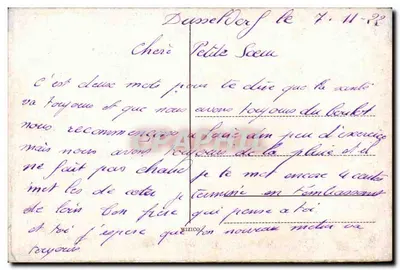 Dusseldorf le 7-11-22
Chere Petite Soeur
C'est deux mots pour te dire que la santé
va toujours et que nous avons toujours du boulot
nous recommençons a faire un peu d'exercice
mais nous avons toujours de la pluie et il
ne fait pas chaud je te met encore 4 cartes
met les de coter je termine en t'embrassant
de loin Ton frère qui pense a toi
et toi j'espere que ton nouveau metier va
toujours